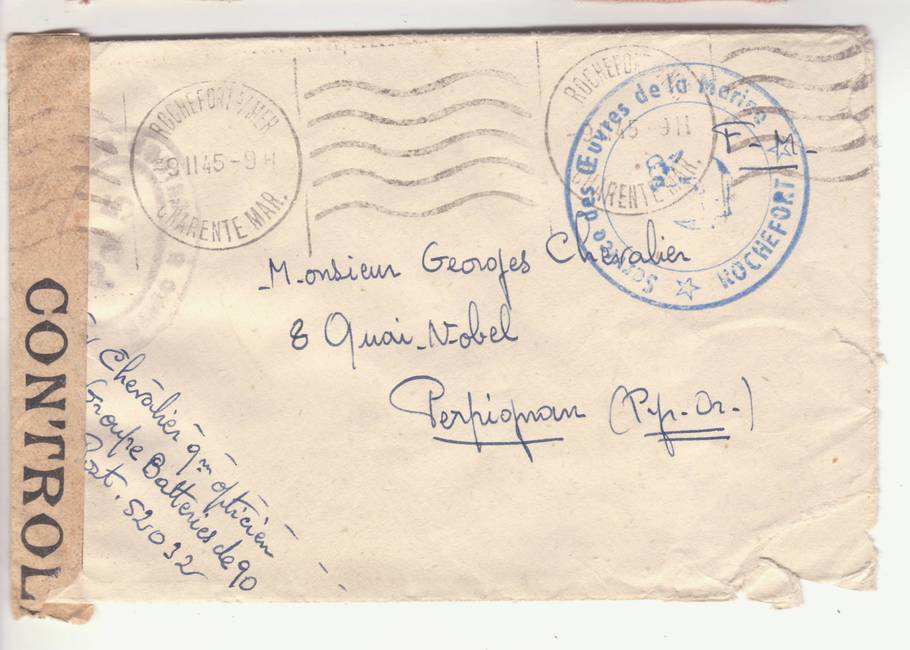 CONTROL
ROCHEFORT S/MER
9 II 45 - 9 H
CHARENTE MAR.
ROCHEFORT
45 - 9 H
CHARENTE MAR.
Service des Œuvres de la Marine
ROCHEFORT
F.M.
Monsieur Georges Chevalier
8 Quai Nobel
Perpignan (Pyr-Or.)
Chevalier qm opticien
Groupe Batteries de 90
Post. 52032